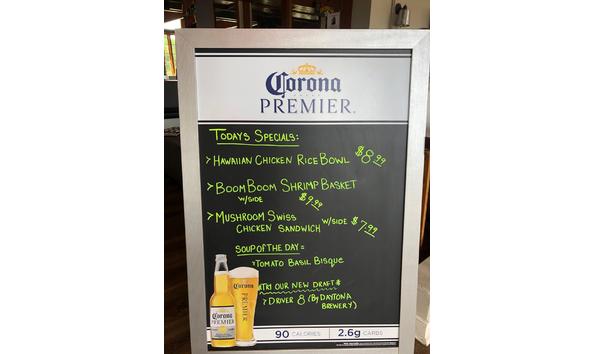 Corona
PREMIER.
TODAYS SPECIALS:
> HAWAIIAN CHICKEN RICE BOWL $8.99
> BOOM BOOM SHRIMP BASKET
W/SIDE $9.99
> MUSHROOM SWISS
CHICKEN SANDWICH W/SIDE $7.99
SOUP OF THE DAY =
> TOMATO BASIL BISQUE
OUR NEW DRAFT
> DRIVER 8 (By DAYTONA
BREWERY)
Corona
PREMIER
Corona
PREMIER
90 CALORIES 2.6g CARBS